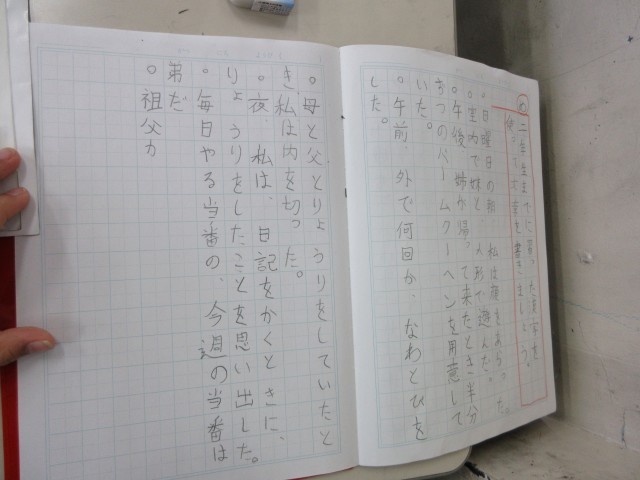 め 二年生までに習った漢字を
使って文章を書きましょう。
○日曜日の朝、私は顔をあらった。
○室内で妹と人形で遊んだ。
○午後、姉が帰って来たとき半分
ずつのバームクーヘンを用意して
いた。
○午前、外で何回か、なわとびを
した。
○母と父とりょうりをしていたと
き、私は肉を切った。
○夜、私は、日記をかくときに、
りょうりをしたことを思い出した。
○毎日やる当番の、今週の当番は
弟だ
○祖父か